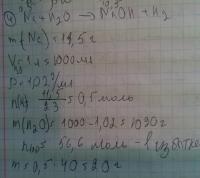 ④ Na + H₂O → NaOH + H₂
m(Na) = 11,5 г
V = 1 л = 1000 мл
ρ = 1,02 г/мл
n(Na) = 11,5/23 = 0,5 моль
m(H₂O) = 1000 · 1,02 = 1020 г
n = 56,6 моль - в избытке
m = 0,5 · 40 = 20 г